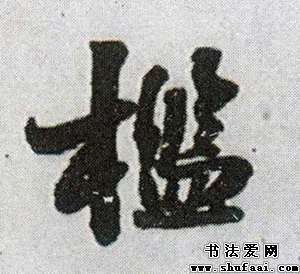 槛
书法爱网
www.shufaai.com